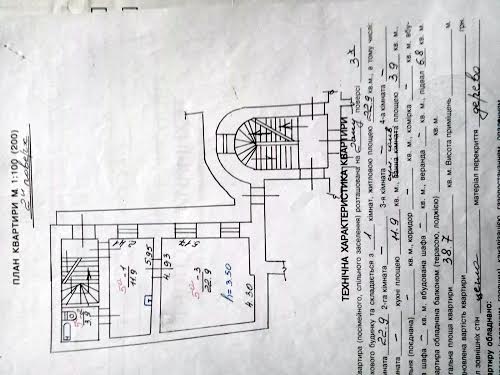 ПЛАН КВАРТИРИ М 1:100 (200)
2й поверх
5а-1
11.9
5.95
4.93
5а-3
22.9
h=3.50
4.30
3.9
ТЕХНІЧНА ХАРАКТЕРИСТИКА КВАРТИРИ
квартира (посімейного, спільного заселення) розташована на поверсі 3х
кового будинку та складається з 1 кімнат, житловою площею 22.9 кв.м., в тому числі:
кімната 22.9 2-га кімната – 3-я кімната – 4-а кімната –
кімната – кухні площею 11.9 кв. м., ванна кімната площею 3.9 кв. м.,
льня (поєднана) – кв. м., коридор – кв. м., комірка – кв. м. вбу-
шафа – кв. м., вбудована шафа – кв. м., веранда – кв. м., підвал 6.8 кв. м.
квартира обладнана балконом (терасою, лоджією) кв. м.
гальна площа квартири 38.7 кв. м. Висота приміщень м.
новлена вартість квартири грн.
зовнішніх стін цегла матеріал перекриття дерево
артиру обладнано: